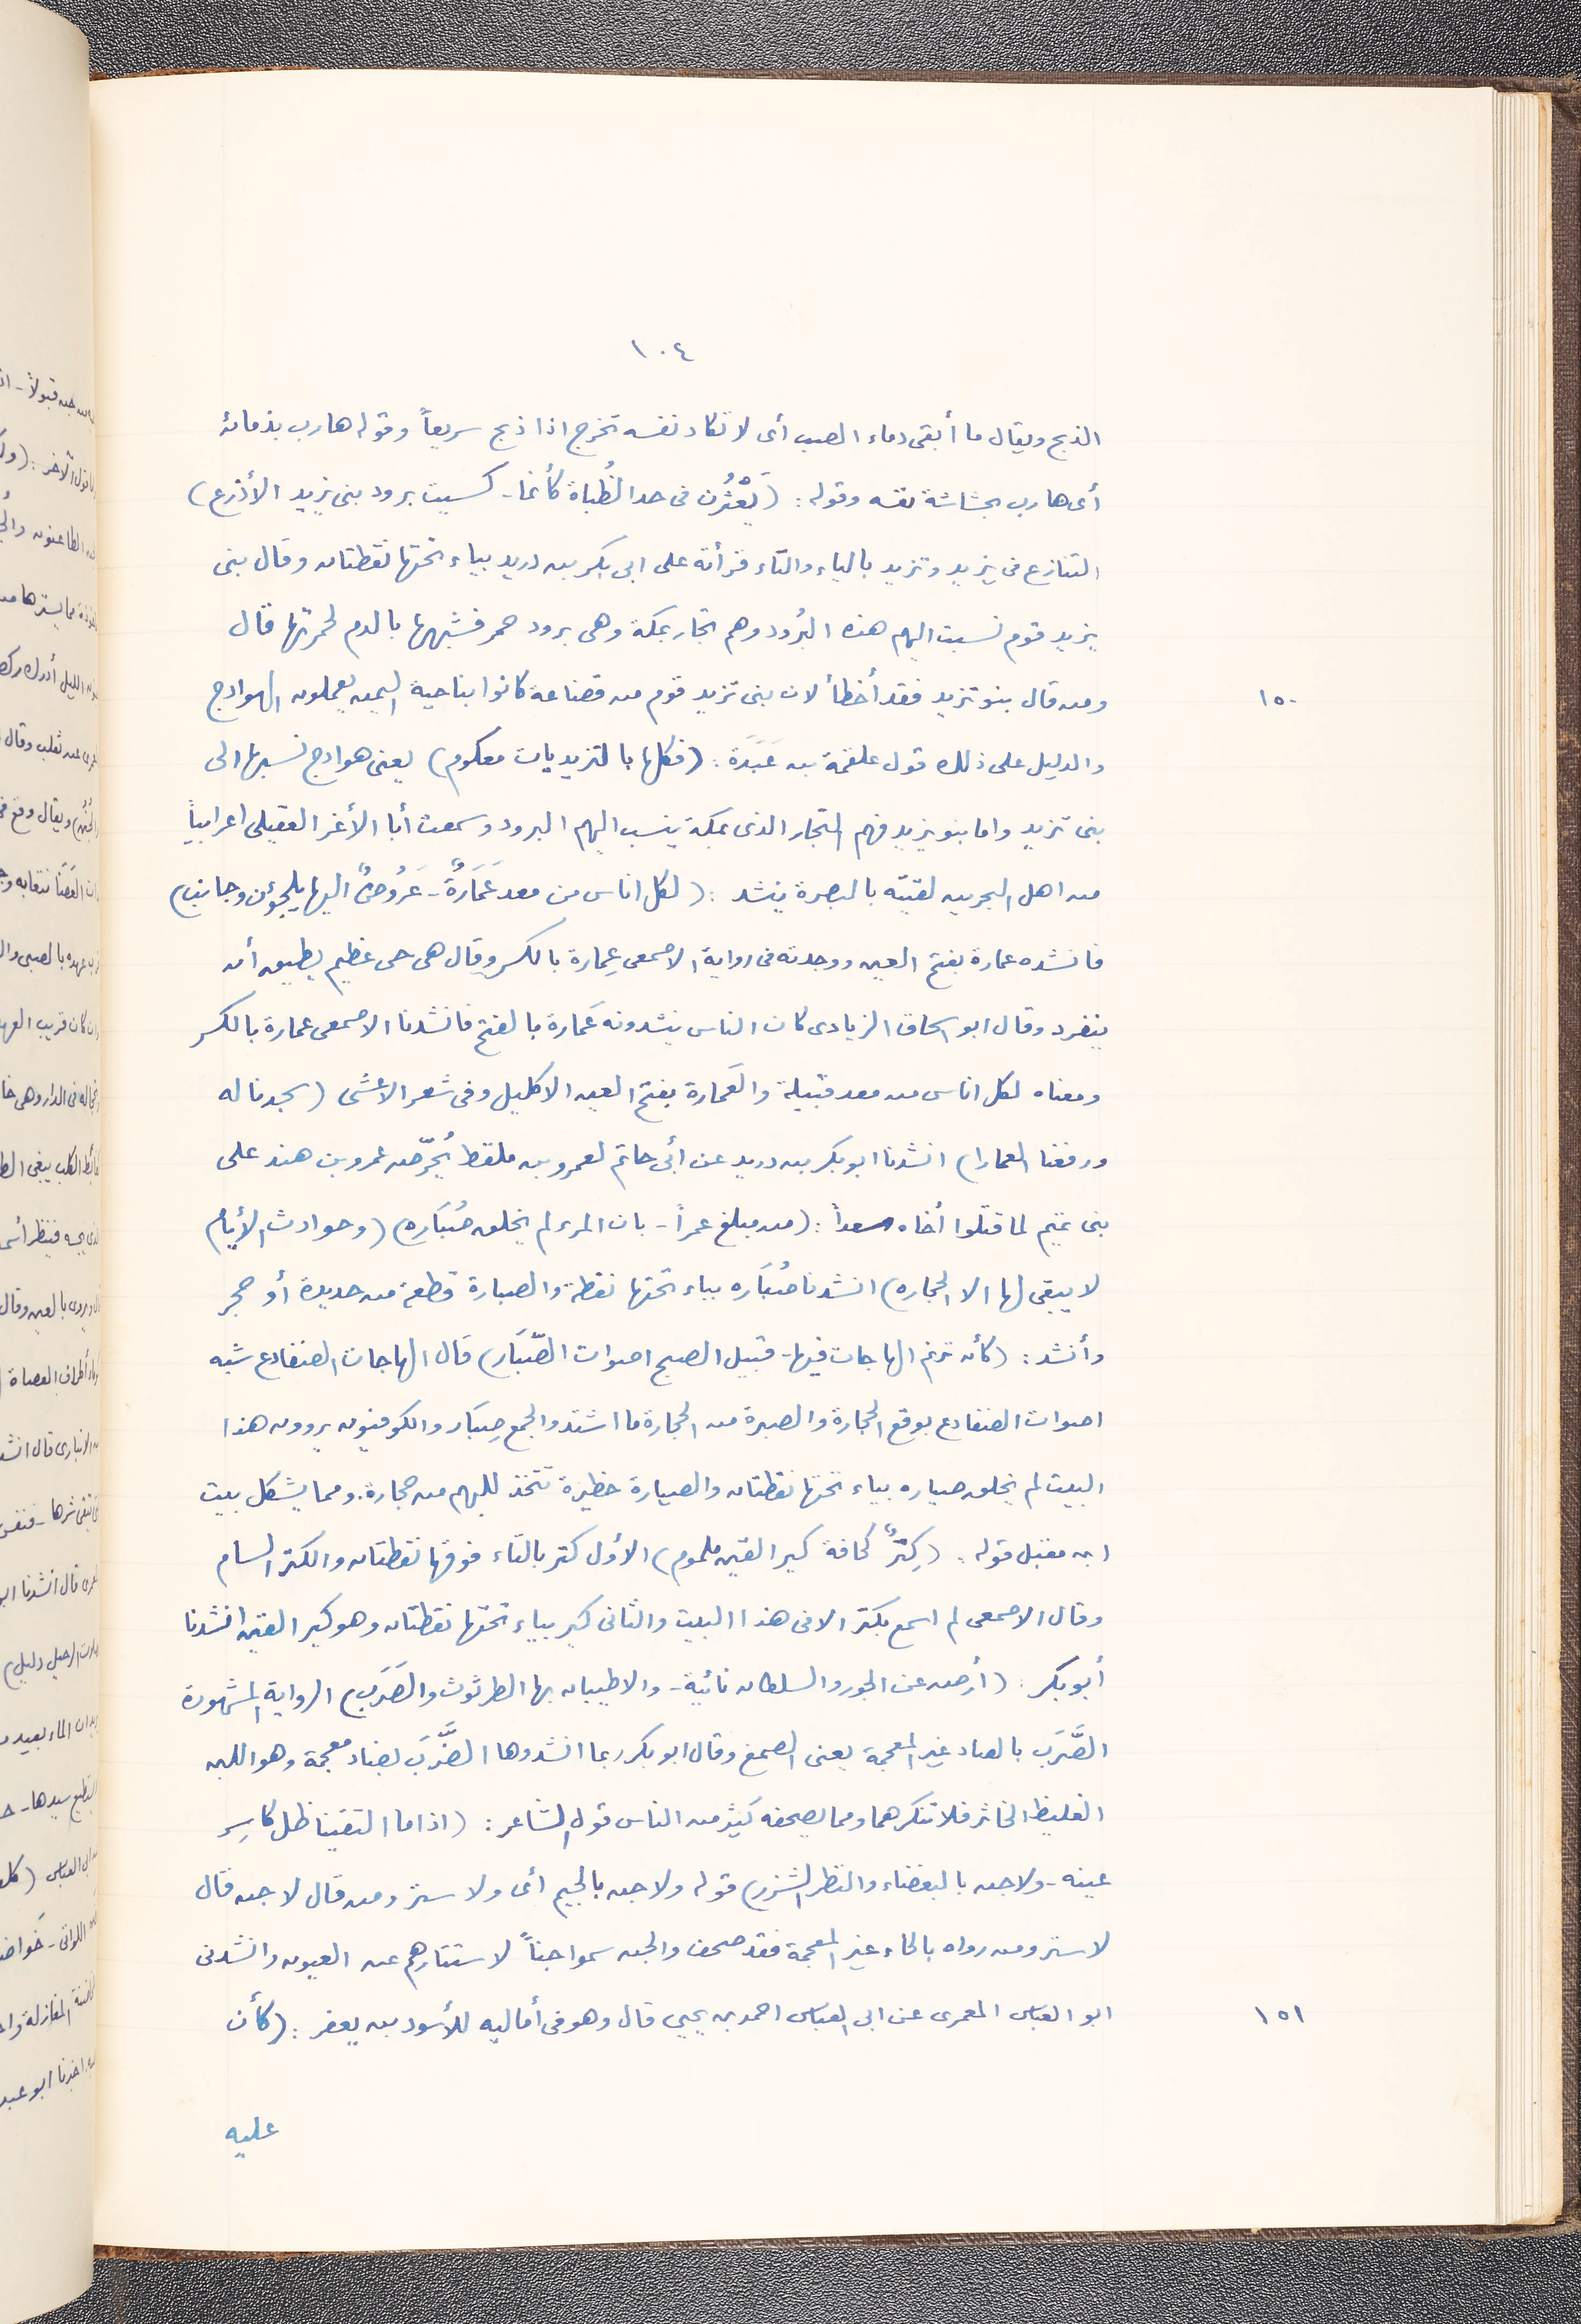 ١٠٤
الذبح ويقال ما أبقى دماء الضب أى لا تكاد نفسه تخرج اذا ذبح سريعاً وقوله هارب بذمائه
أى هارب بحشاشة نفسه وقوله : (يَعْثُرْن فى حد الظُباة كأنما - كسيت برود بنى يزيد الأذرع)
التنازع فى يزيد وتزيد بالياء والتاء قرأته على ابى بكر بن دريد بياء تحتها نقطتان وقال بنى
يزيد قوم نسبت اليهم هذه البُرُود وهم تجار بمكة وهى برود حمر فشبهها بالدم لحمرتها قال
١٥٠
ومن قال بنو تزيد فقد أخطأ لان بنى تزيد قوم من قضاعة كانوا بناحية اليمن يعملون الهوادج
والدليل على ذلك قول علقمة بن عَبَدَة : (فكلها بالتزيديات معكوم) يعنى هوادج نسبها الى
بنى تزيد واما بنو يزيد فهم التجار الذى بمكة ينسب اليهم البرود وسمعت أبا الأغر العقيلى اعرابياً
من اهل البحرين لقيته بالبصرة ينشد : (لكل اناس من معد عَمَارةٌ - عَرُوضٌ اليها يلجؤن وجانب)
فانشده عمارة بفتح العين ووجدته فى رواية الاصمعى عِمارة بالكسر وقال هى حى عظيم يطيق أن
ينفرد وقال ابو اسحاق الزيادى كان الناس ينشدونه عَمارة بالفتح فانشدنا الاصمعى عمارة بالكسر
ومعناه لكل اناس من معد قبيلة والعَمارة بفتح العين الاكليل وفى شعر الاعشى (سجدنا له
ورفعنا العمارا) انشدنا ابو بكر بن دريد عن أبى حاتم لعمرو بن ملقط يُحرّض عمرو بن هند على
بنى تميم لما قتلوا أخاه سعداً : (من مبلغ عمراً - بان المرء لم يخلق صُبَاره) (وحوادث الأيام
لا يبقى لها الا الحجاره) انشدنا صُبَاره بباء تحتها نقطة والصبارة قطعة من حديدة أو حجر
وأنشد : (كأن ترنم الهاجات فيها - قبيل الصبح اصوات الصّبَار) قال الهاجات الضفادع شبه
اصوات الضفادع بوقع الحجارة والصبرة من الحجارة ما اشتد والجمع صِبَار والكوفيون يروون هذا
البيت لم يخلق صياره بياء تحتها نقطتان والصيارة حظيرة تتخذ للبهم من حجارة. ومما يشكل بيت
ابن مقبل قوله : (كِترٌ كحافة كير القين ملموم) الأول كتر بالتاء فوقها نقطتان والكتر السنام
وقال الاصمعى لم اسمع بكتر الا فى هذا البيت والثانى كير بياء تحتها نقطتان وهو كير القين انشدنا
أبو بكر : (أرض عن الجور والسلطان نائية - والاطيبان بها الطرثوث والصَرَب) الرواية المشهورة
الصَّرَب بالصاد غير المعجمة يعنى الصمغ وقال ابو بكر ربما انشدوها الضَّرَبَ بضاد معجمة وهو اللبن
الغليظ الخاثر فلا تنكرهما ومما يصحفه كثير من الناس قول الشاعر : (اذا ما التقينا ظل كاسِر
عينه - ولا جن بالبغضاء والنظر الشزر) قوله ولا جن بالجيم أى ولا ستر ومن قال لا جن قال
لا ستر ومن رواه بالحاء غير المعجمة فقد صحف والجن سموا جناً لاستتارهم عن العيون وانشدنى
١٥١
ابو العباس المعمرى عن ابى العباس احمد بن يحيى قال وهو فى أماليه للأسود بن يعفر : (كأن
عليه